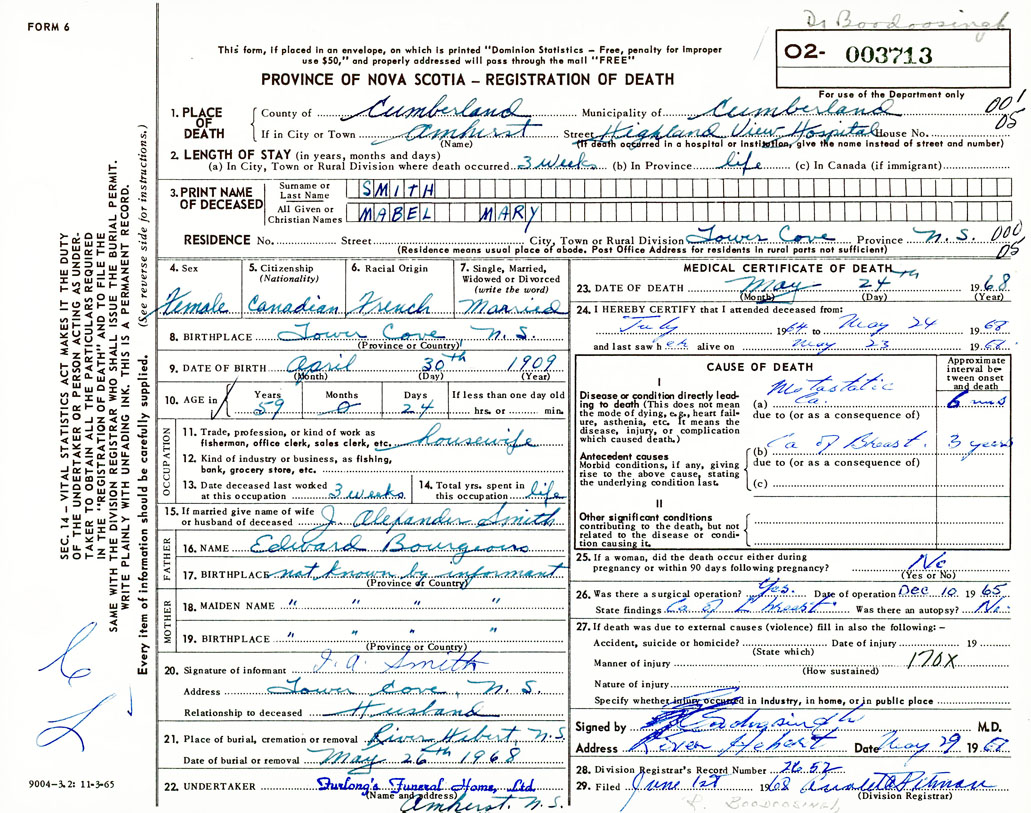 FORM 6
Dr Boodoosingh
This form, if placed in an envelope, on which is printed "Dominion Statistics – Free, penalty for improper
use $50," and properly addressed will pass through the mail "FREE"
PROVINCE OF NOVA SCOTIA – REGISTRATION OF DEATH
O2- 003713
For use of the Department only
001
05
1. PLACE OF DEATH
County of Cumberland Municipality of Cumberland
If in City or Town Amherst Street Highland View Hospital House No.
(Name) (If death occurred in a hospital or institution, give the name instead of street and number)
2. LENGTH OF STAY (in years, months and days)
(a) In City, Town or Rural Division where death occurred 3 weeks (b) In Province life (c) In Canada (if immigrant)
3. PRINT NAME OF DECEASED
Surname or Last Name SMITH
All Given or Christian Names MABEL MARY
RESIDENCE No. Street City, Town or Rural Division Tower Cove Province N.S.
000
05
(Residence means usual place of abode. Post Office Address for residents in rural parts not sufficient)
4. Sex
Female
5. Citizenship
(Nationality)
Canadian
6. Racial Origin
French
7. Single, Married,
Widowed or Divorced
(write the word)
Married
8. BIRTHPLACE Tower Cove N.S.
(Province or Country)
9. DATE OF BIRTH April 30th 1909
(Month) (Day) (Year)
10. AGE in
Years Months Days If less than one day old
59 0 24 hrs. or min.
OCCUPATION
11. Trade, profession, or kind of work as
fisherman, office clerk, sales clerk, etc. housewife
12. Kind of industry or business, as fishing,
bank, grocery store, etc.
13. Date deceased last worked
at this occupation 3 weeks
14. Total yrs. spent in
this occupation life
15. If married give name of wife
or husband of deceased J. Alexander Smith
FATHER
16. NAME Edward Bourgeois
17. BIRTHPLACE not known by informant
(Province or Country)
MOTHER
18. MAIDEN NAME " " " "
19. BIRTHPLACE " " " "
(Province or Country)
20. Signature of informant J. A. Smith
Address Tower Cove, N.S.
Relationship to deceased Husband
21. Place of burial, cremation or removal River Hebert N.S.
Date of burial or removal May 26th 1968
22. UNDERTAKER Furlong's Funeral Home, Ltd.
(Name and address)
Amherst, N.S.
MEDICAL CERTIFICATE OF DEATH
23. DATE OF DEATH May 24th 1968
(Month) (Day) (Year)
24. I HEREBY CERTIFY that I attended deceased from:
July 1964 to May 24 1968
and last saw her alive on May 23 19
CAUSE OF DEATH
Approximate
interval be-
tween onset
and death
I
Disease or condition directly lead-
ing to death (This does not mean
the mode of dying, e.g., heart fail-
ure, asthenia, etc. It means the
disease, injury, or complication
which caused death.)
(a) Metastatic Ca. 6 mos
due to (or as a consequence of)
Antecedent causes
Morbid conditions, if any, giving
rise to the above cause, stating
the underlying condition last.
(b) Ca of Breast. 3 years
due to (or as a consequence of)
(c)
II
Other significant conditions
contributing to the death, but not
related to the disease or condi-
tion causing it.
25. If a woman, did the death occur either during
pregnancy or within 90 days following pregnancy? No
(Yes or No)
26. Was there a surgical operation? Yes. Date of operation Dec 10 1965
State findings Ca of L breast. Was there an autopsy? No.
27. If death was due to external causes (violence) fill in also the following: –
Accident, suicide or homicide? Date of injury 19
(State which)
Manner of injury 170X
(How sustained)
Nature of injury
Specify whether injury occurred in Industry, in home, or in public place
Signed by Boodoosingh M.D.
Address River Hebert Date May 29 19
28. Division Registrar's Record Number 2652
29. Filed June 1st 1968
(Division Registrar)
R. BOODOOSINGH
SEC. 14 – VITAL STATISTICS ACT MAKES IT THE DUTY
OF THE UNDERTAKER OR PERSON ACTING AS UNDER-
TAKER TO OBTAIN ALL THE PARTICULARS REQUIRED
IN THE "REGISTRATION OF DEATH" AND TO FILE THE
SAME WITH THE DIVISION REGISTRAR WHO SHALL ISSUE THE BURIAL PERMIT.
WRITE PLAINLY WITH UNFADING INK. THIS IS A PERMANENT RECORD.
Every item of information should be carefully supplied. (See reverse side for instructions.)
9004–3.2: 11-3-65